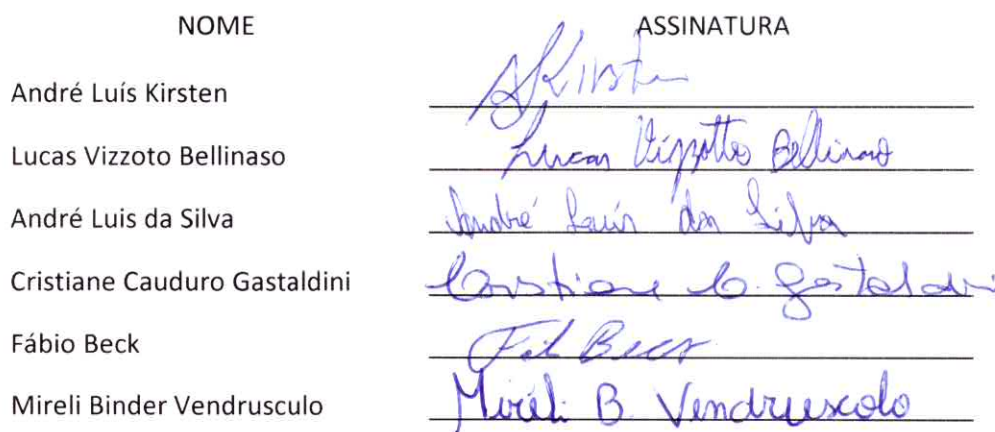 NOME ASSINATURA
André Luís Kirsten AKirsten
Lucas Vizzoto Bellinaso Lucas Vizzotto Bellinaso
André Luis da Silva André Luís da Silva
Cristiane Cauduro Gastaldini Cristiane C. Gastaldini
Fábio Beck Fábio Beck
Mireli Binder Vendrusculo Mireli B. Vendruscolo